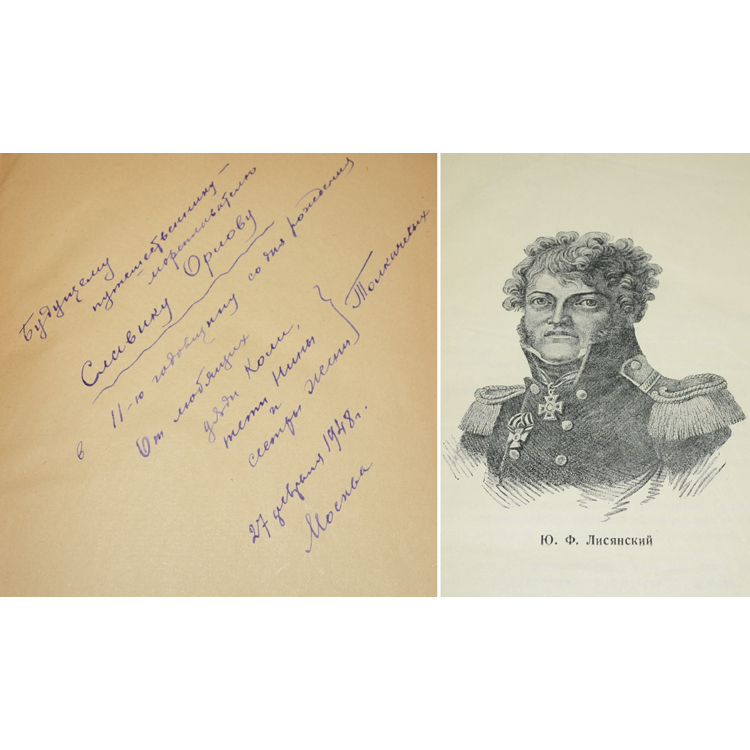 Будущему
путешественнику —
мореплавателю
Славику Орлову
в 11-ю годовщину со дня рождения
От любящих
дяди Коли,
тети Нины
и
сестры Жени
Толкачевых
27 февраля 1948 г.
Москва
Ю. Ф. Лисянский